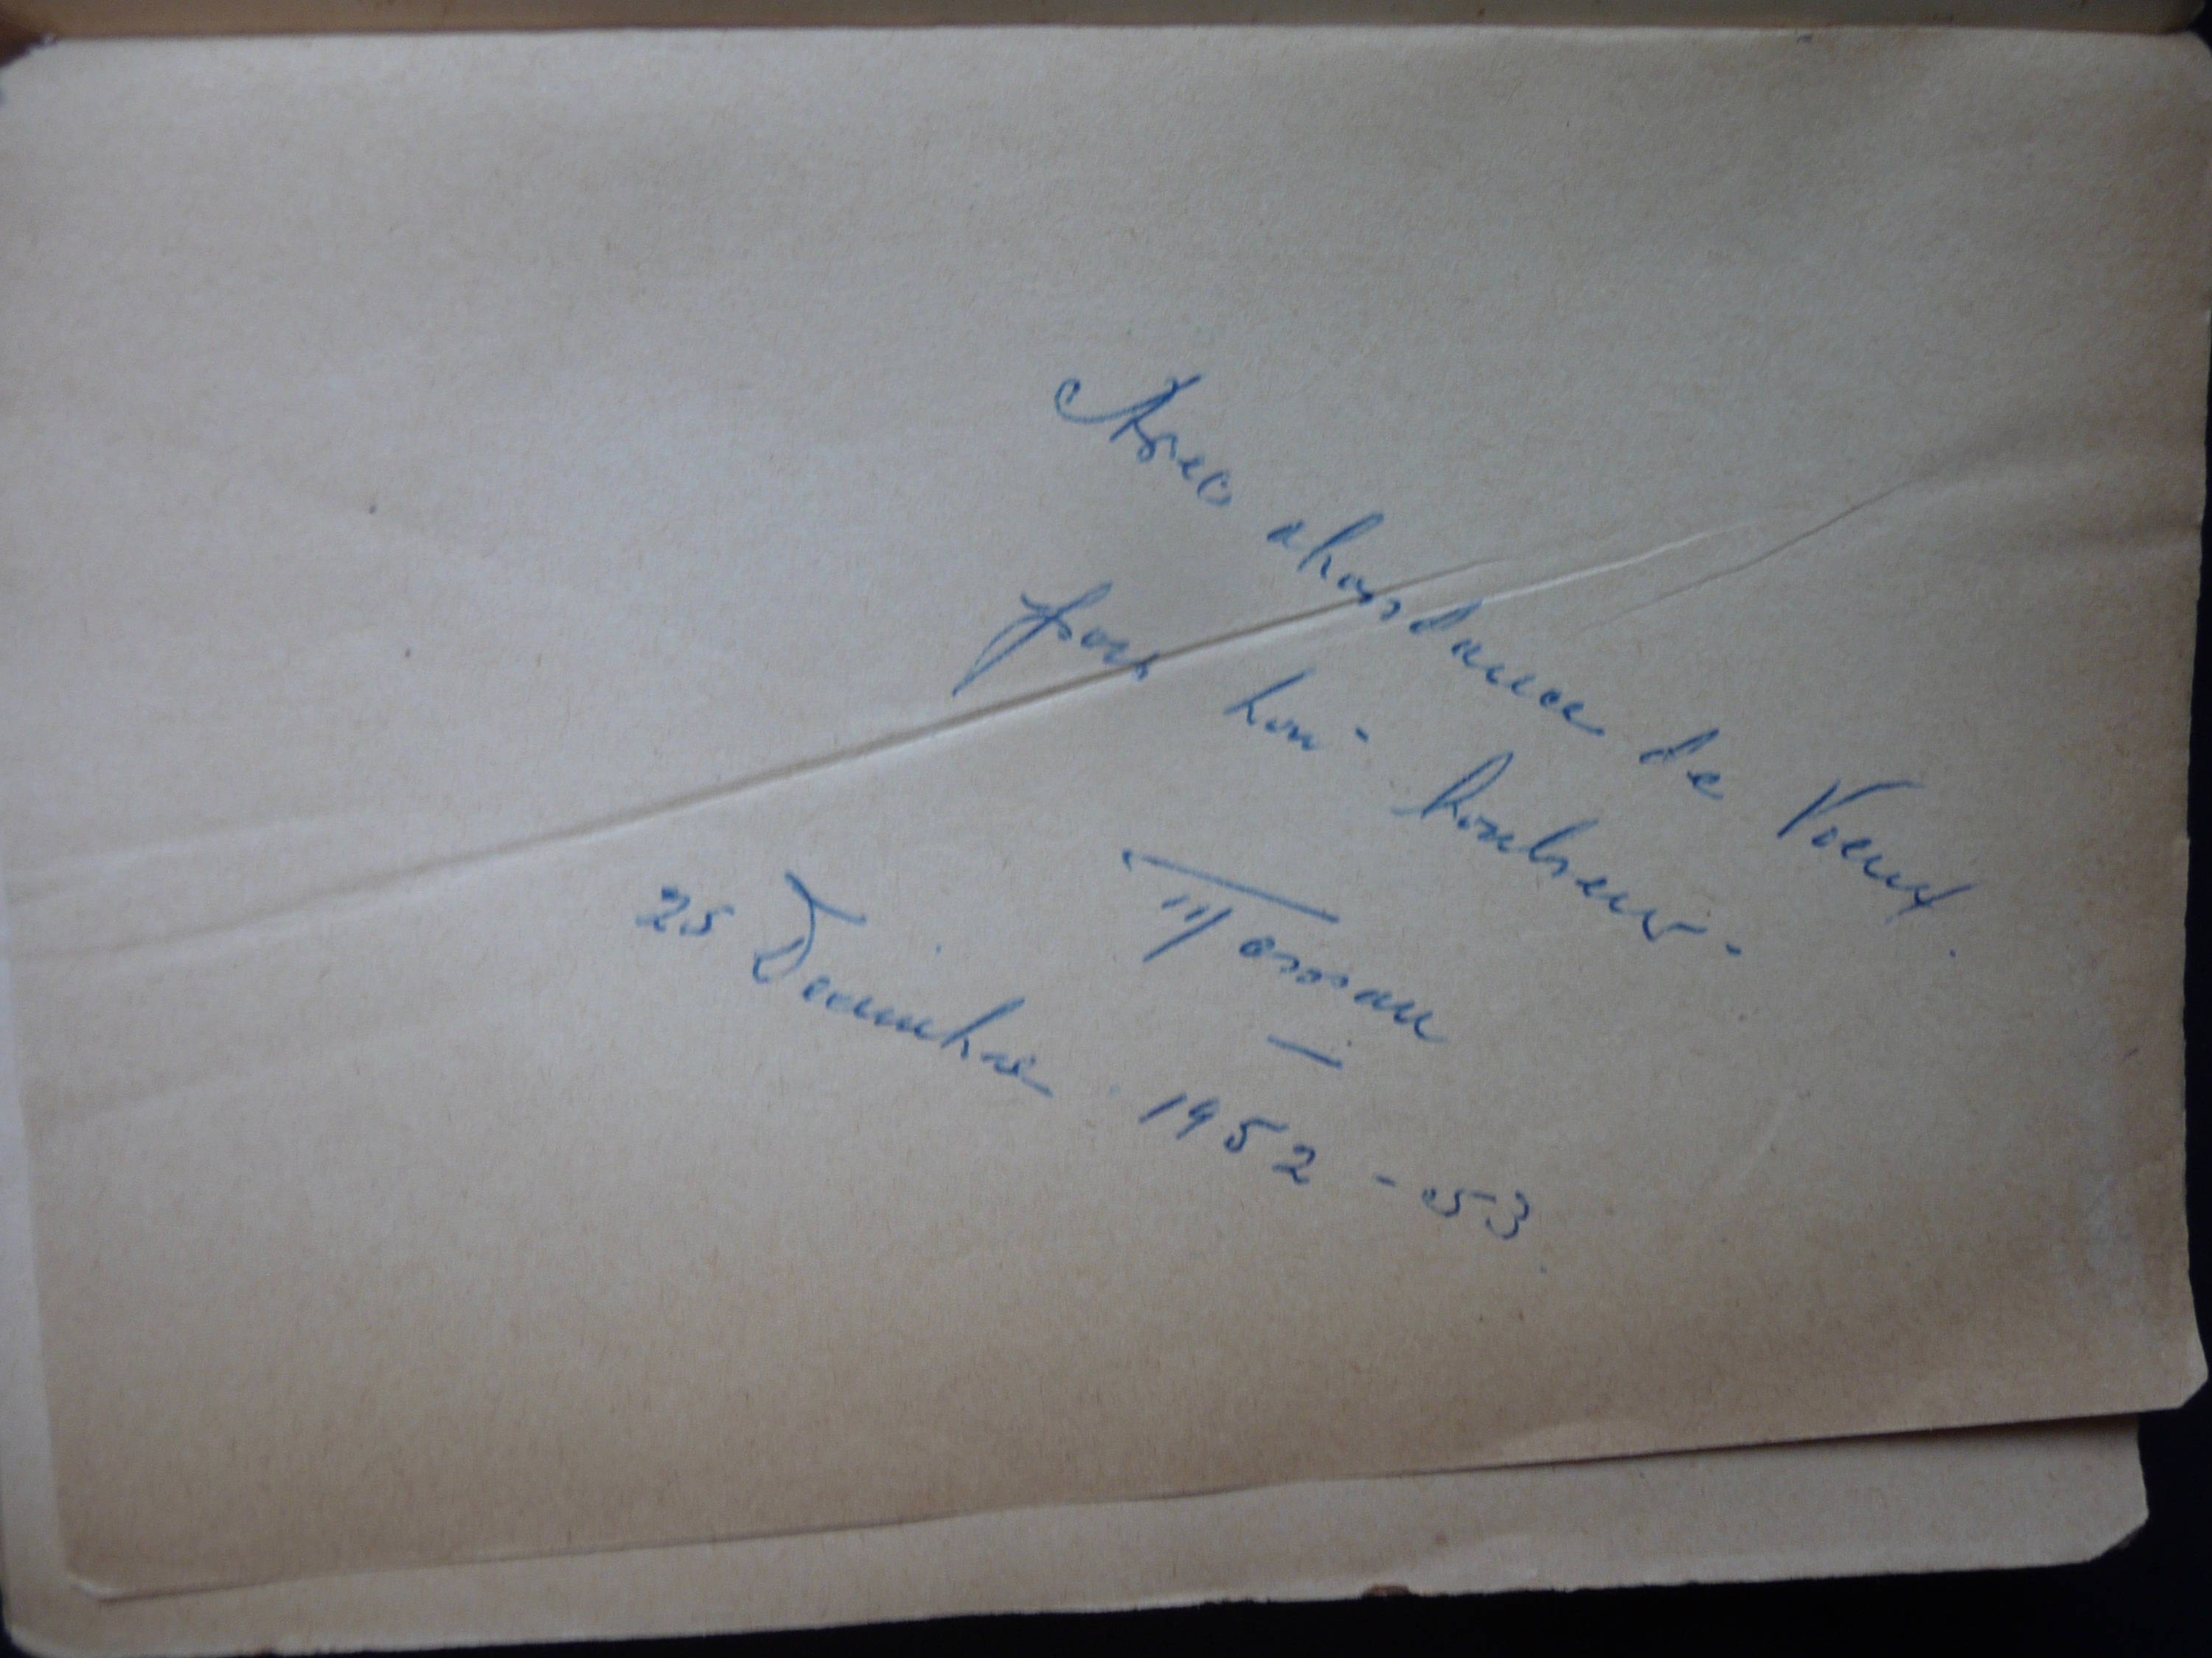 Avec abondance de Voeux.
pour bonheur -
25 Decembre 1952 - 53